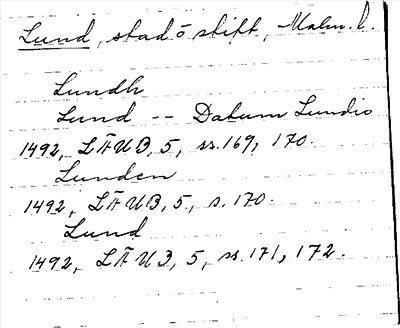 Lund, stad o stift, Malm. l.
Lundh
Lund -- Datum Lundis
1492, LÄUB, 5, ss. 169, 170.
Lunden
1492, LÄUB, 5, s. 170.
Lund
1492, LÄUB, 5, ss. 171, 172.